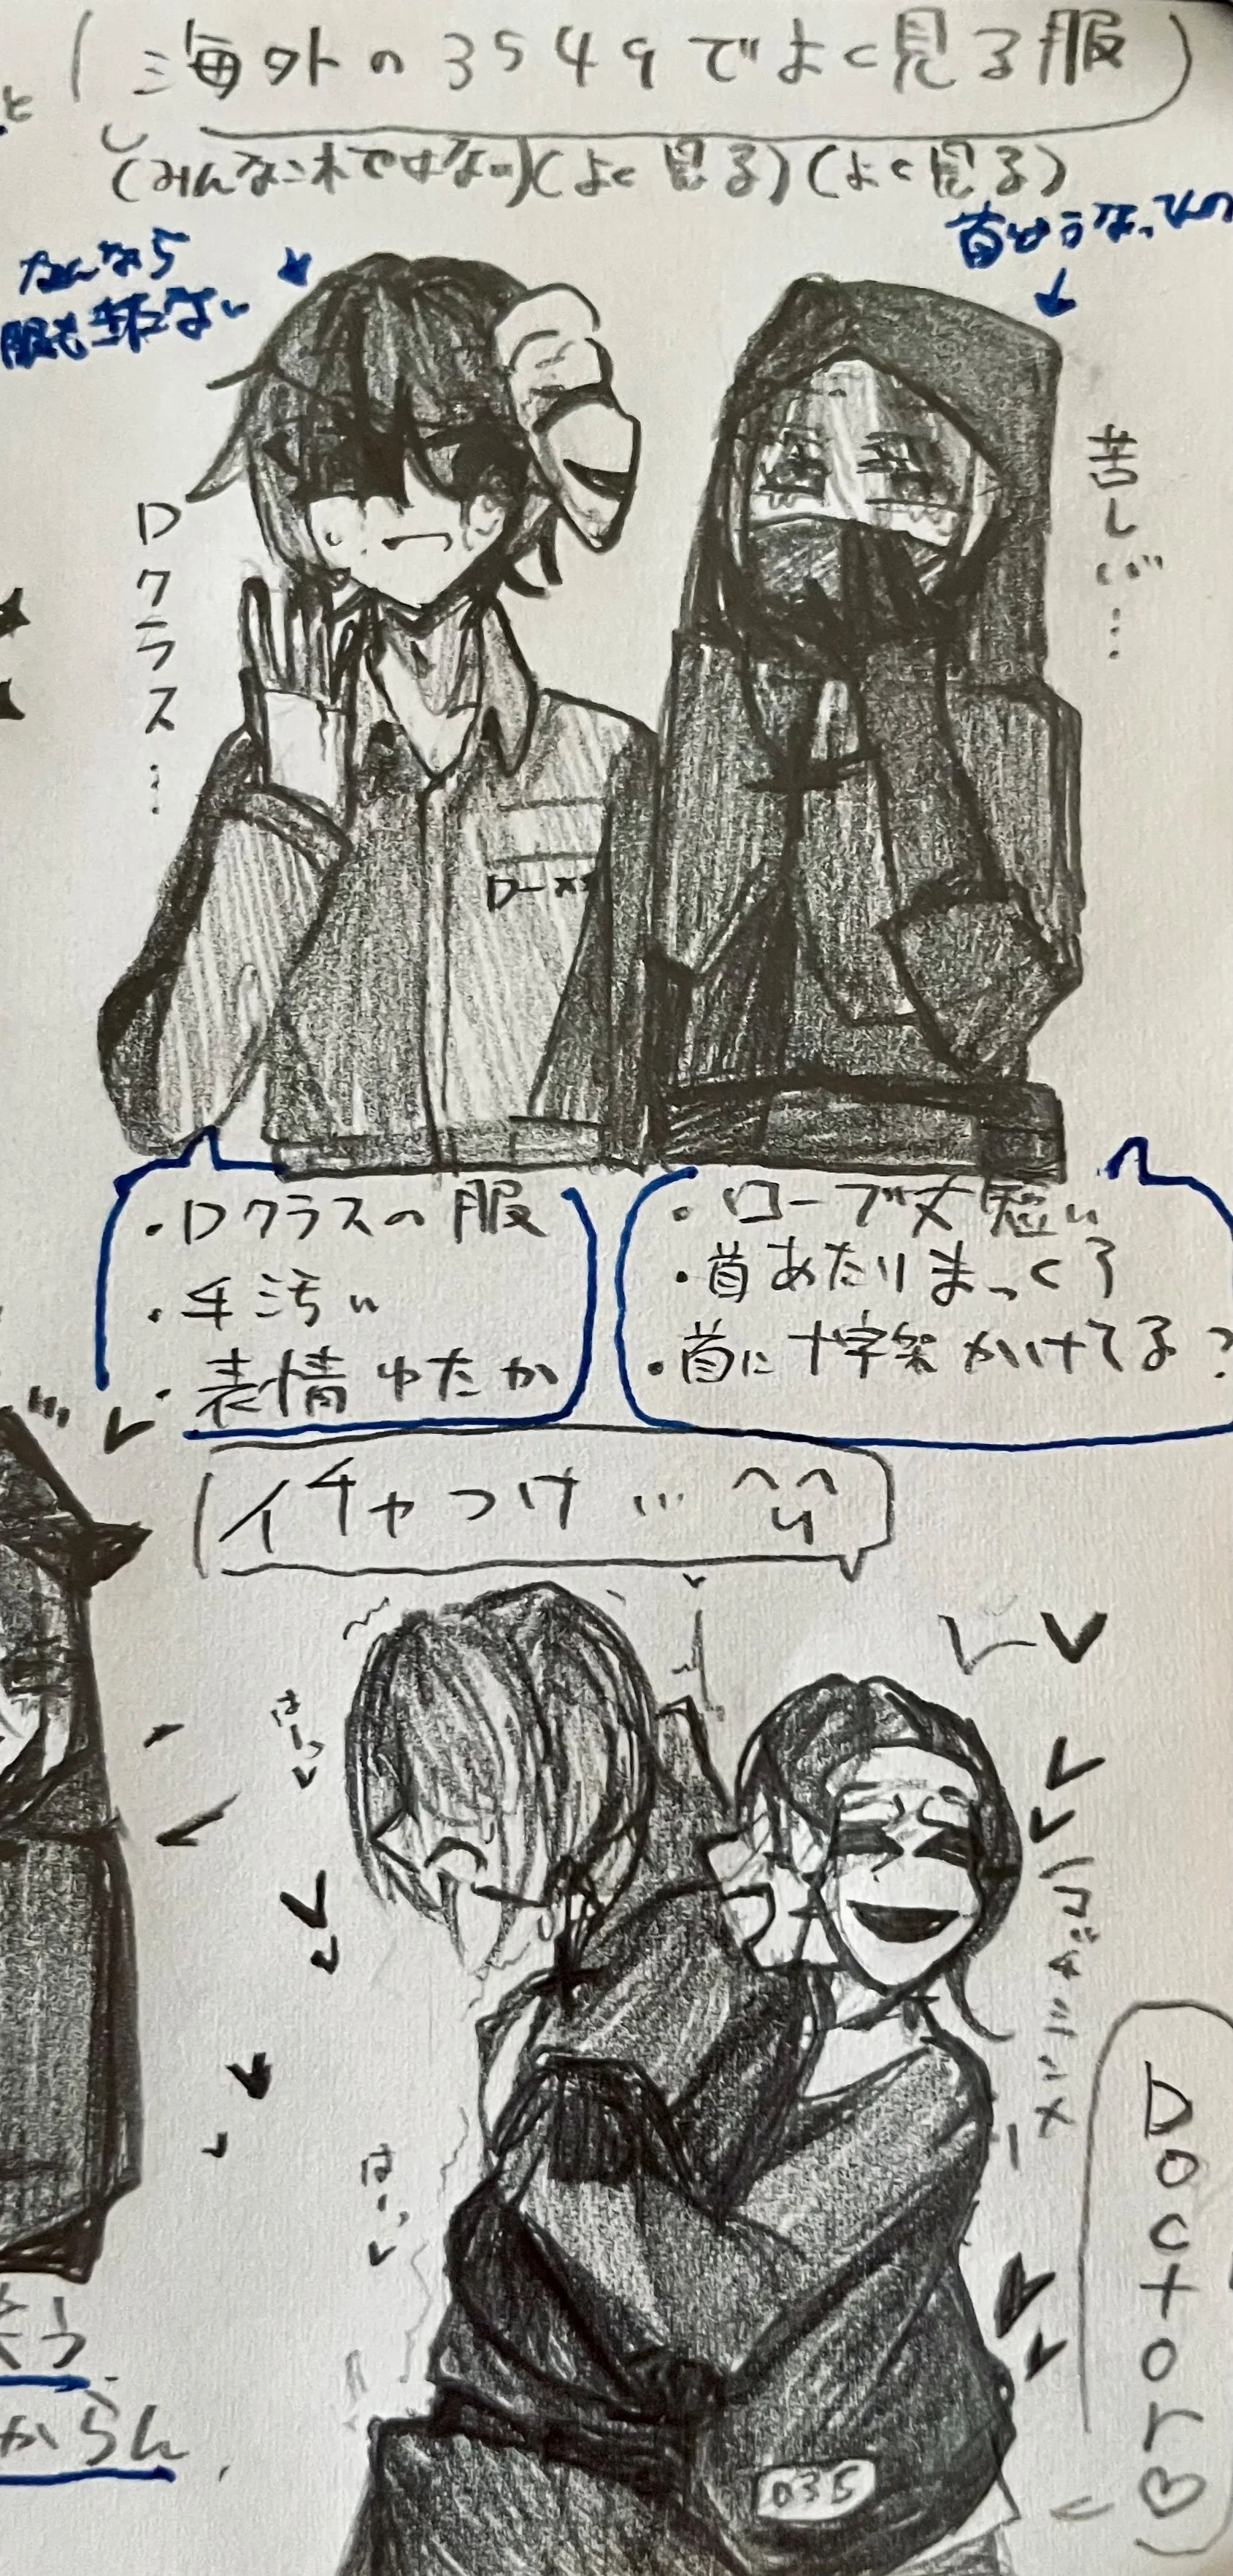 海外の3549でよく見る服
(みんなこれではない)(よく見る)(よく見る)
なんなら
服も着てない
苦しい…
Dクラス…
・Dクラスの服
・手汚い
・表情ゆたか
・ローブ丈短い
・首あたりまっくろ
・首に十字架かけてる?
イチャつけ…^^
はーっ
はーっ
Doctor♡
035
からん